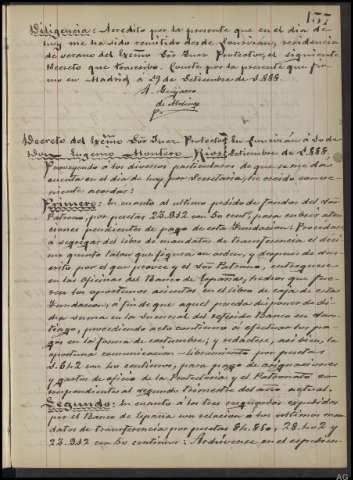 157
Diligencia: Acredito por la presente que en el día de
hoy me ha sido remitido desde Lourizán, residencia
de verano del Excmo Sor Juez Protector, el siguiente
Decreto que transcribo. Conste por la presente que fir
mo en Madrid a 29 de Setiembre de 1.888.
Decreto del Excmo Sor Juez Protector En Lourizán á de
Don Eugenio Montero Ríos Setiembre de 1.888.
de que se me dá
cuenta en el día de hoy por Secretaría; he creído conve-
niente acordar:
Primero: En cuanto al ultimo pedido de fondos del Sor
Patrono, por pesetas 23.912 con 60 cents, para cubrir aten
ciones pendientes de pago de esta Fundación: Procedase
á segregar del libro de mandatos de transferencia el deci
mo quinto talon que figura en orden, y despues de
en las oficinas del Banco de España,
los oportunos asientos en el libro de caja de esta
Fundación; á fin de que aquel pueda disponer de di
cha suma en la Sucursal del referido Banco en San-
tiago, procediendo acto continuo á efectuar los pa-
gos en la forma de costumbre; y redáctese, así bien, la
oportuna comunicación - libramiento por pesetas
con 40 centimos, para pago de asignaciones
y gastos de oficina de la Protectoría y Patronato co-
rrespondientes al segundo trimestre del año actual.
Segundo: En cuanto á los tres resguardos expedidos
por el Banco de España con relacion á los ultimos man
datos de transferencia por pesetas
23.912 con 60 centimos: Archívense en el expedien-
AG